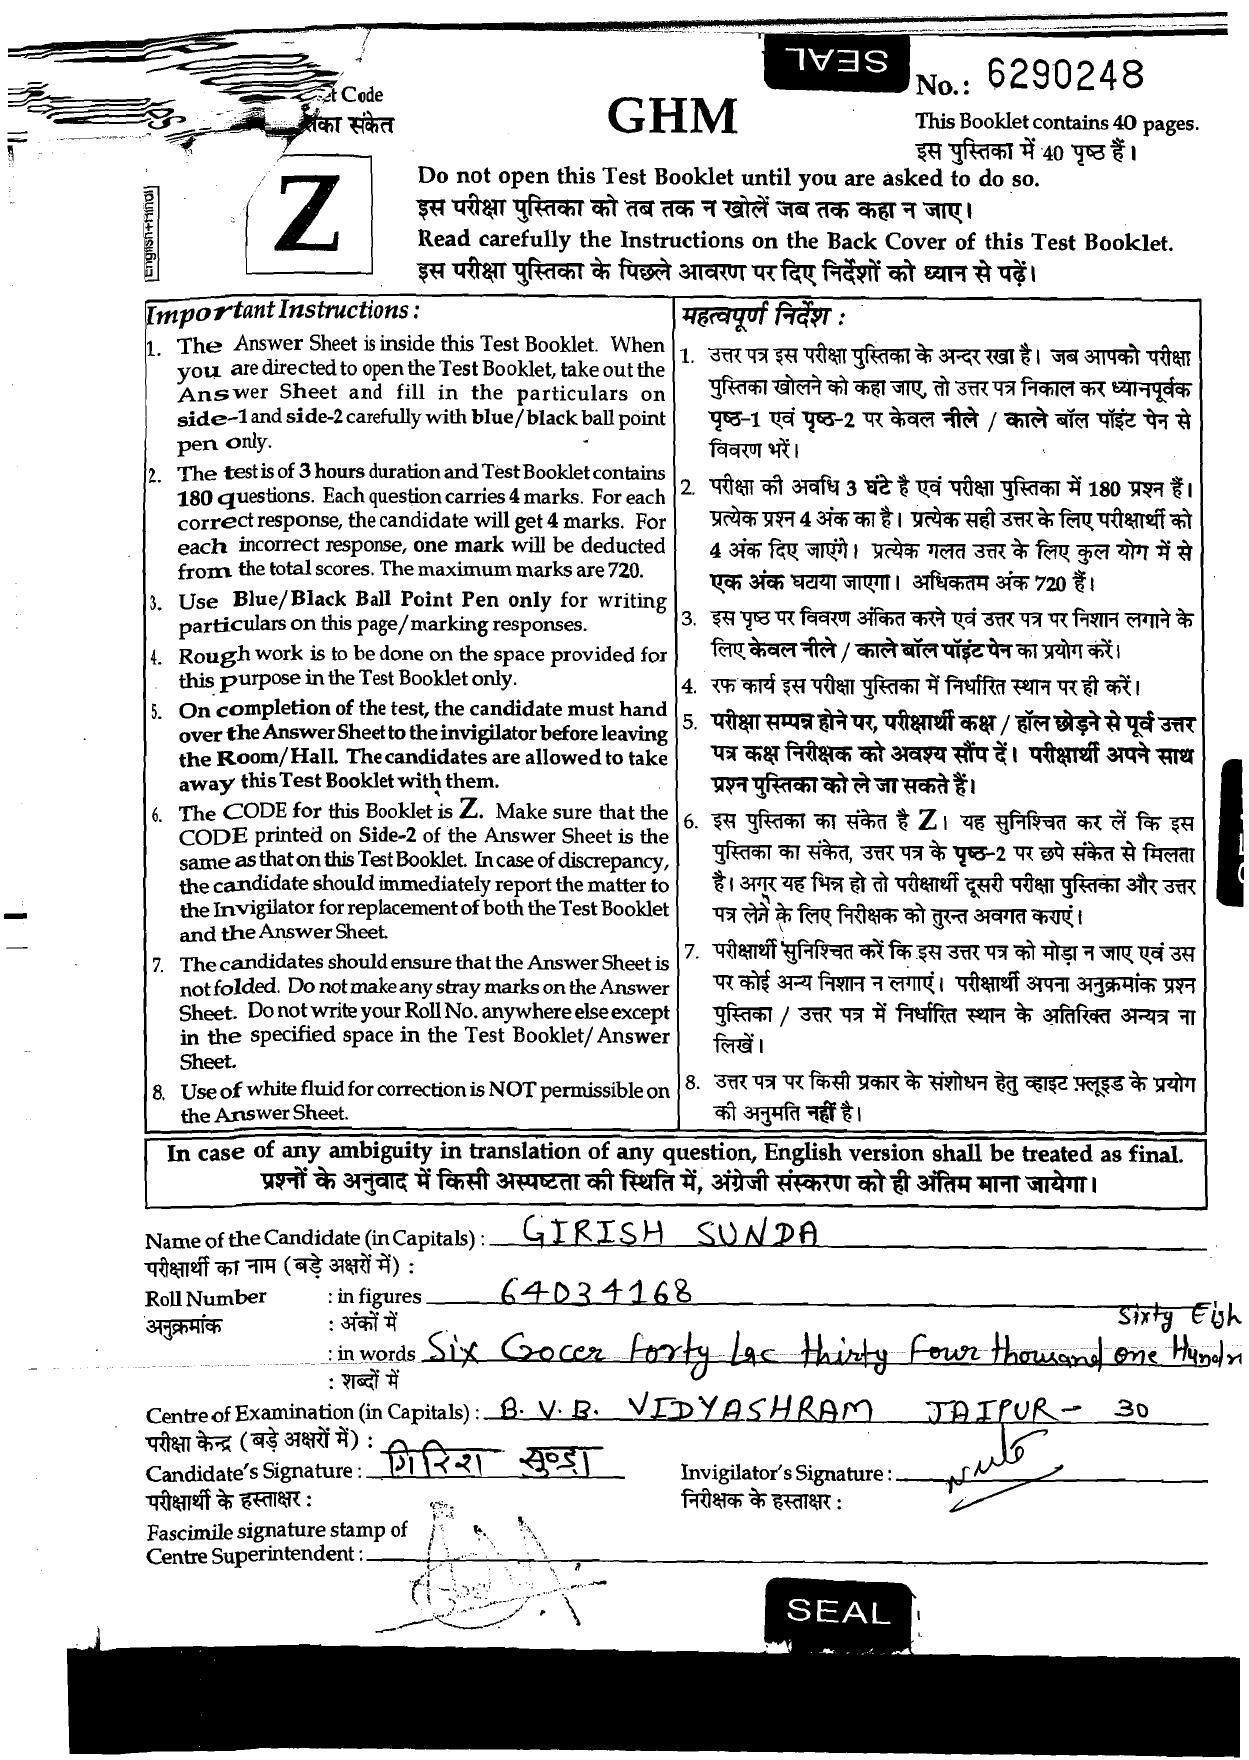 SEAL
No.: 6290248
et Code
तका संकेत
GHM
This Booklet contains 40 pages.
इस पुस्तिका में 40 पृष्ठ हैं।
English+Hindi
Z
Do not open this Test Booklet until you are asked to do so.
इस परीक्षा पुस्तिका को तब तक न खोलें जब तक कहा न जाए।
Read carefully the Instructions on the Back Cover of this Test Booklet.
इस परीक्षा पुस्तिका के पिछले आवरण पर दिए निर्देशों को ध्यान से पढ़ें।
Important Instructions :
1. The Answer Sheet is inside this Test Booklet. When
you are directed to open the Test Booklet, take out the
Answer Sheet and fill in the particulars on
side-1 and side-2 carefully with blue/black ball point
pen only.
2. The test is of 3 hours duration and Test Booklet contains
180 questions. Each question carries 4 marks. For each
correct response, the candidate will get 4 marks. For
each incorrect response, one mark will be deducted
from the total scores. The maximum marks are 720.
3. Use Blue/Black Ball Point Pen only for writing
particulars on this page/marking responses.
4. Rough work is to be done on the space provided for
this purpose in the Test Booklet only.
5. On completion of the test, the candidate must hand
over the Answer Sheet to the invigilator before leaving
the Room/Hall. The candidates are allowed to take
away this Test Booklet with them.
6. The CODE for this Booklet is Z. Make sure that the
CODE printed on Side-2 of the Answer Sheet is the
same as that on this Test Booklet. In case of discrepancy,
the candidate should immediately report the matter to
the Invigilator for replacement of both the Test Booklet
and the Answer Sheet.
7. The candidates should ensure that the Answer Sheet is
not folded. Do not make any stray marks on the Answer
Sheet. Do not write your Roll No. anywhere else except
in the specified space in the Test Booklet/Answer
Sheet.
8. Use of white fluid for correction is NOT permissible on
the Answer Sheet.
महत्वपूर्ण निर्देश :
1. उत्तर पत्र इस परीक्षा पुस्तिका के अन्दर रखा है। जब आपको परीक्षा
पुस्तिका खोलने को कहा जाए, तो उत्तर पत्र निकाल कर ध्यानपूर्वक
पृष्ठ-1 एवं पृष्ठ-2 पर केवल नीले / काले बॉल पॉइंट पेन से
विवरण भरें।
2. परीक्षा की अवधि 3 घंटे है एवं परीक्षा पुस्तिका में 180 प्रश्न हैं।
प्रत्येक प्रश्न 4 अंक का है। प्रत्येक सही उत्तर के लिए परीक्षार्थी को
4 अंक दिए जाएंगे। प्रत्येक गलत उत्तर के लिए कुल योग में से
एक अंक घटाया जाएगा। अधिकतम अंक 720 हैं।
3. इस पृष्ठ पर विवरण अंकित करने एवं उत्तर पत्र पर निशान लगाने के
लिए केवल नीले / काले बॉल पॉइंट पेन का प्रयोग करें।
4. रफ कार्य इस परीक्षा पुस्तिका में निर्धारित स्थान पर ही करें।
5. परीक्षा सम्पन्न होने पर, परीक्षार्थी कक्ष / हॉल छोड़ने से पूर्व उत्तर
पत्र कक्ष निरीक्षक को अवश्य सौंप दें। परीक्षार्थी अपने साथ
प्रश्न पुस्तिका को ले जा सकते हैं।
6. इस पुस्तिका का संकेत है Z। यह सुनिश्चित कर लें कि इस
पुस्तिका का संकेत, उत्तर पत्र के पृष्ठ-2 पर छपे संकेत से मिलता
है। अगर यह भिन्न हो तो परीक्षार्थी दूसरी परीक्षा पुस्तिका और उत्तर
पत्र लेने के लिए निरीक्षक को तुरन्त अवगत कराएं।
7. परीक्षार्थी सुनिश्चित करें कि इस उत्तर पत्र को मोड़ा न जाए एवं उस
पर कोई अन्य निशान न लगाएं। परीक्षार्थी अपना अनुक्रमांक प्रश्न
पुस्तिका / उत्तर पत्र में निर्धारित स्थान के अतिरिक्त अन्यत्र ना
लिखें।
8. उत्तर पत्र पर किसी प्रकार के संशोधन हेतु व्हाइट फ़्लूइड के प्रयोग
की अनुमति नहीं है।
In case of any ambiguity in translation of any question, English version shall be treated as final.
प्रश्नों के अनुवाद में किसी अस्पष्टता की स्थिति में, अंग्रेजी संस्करण को ही अंतिम माना जायेगा।
Name of the Candidate (in Capitals) : GIRISH SUNDA
परीक्षार्थी का नाम (बड़े अक्षरों में) :
Roll Number : in figures 64034168
अनुक्रमांक : अंकों में
Sixty Eigh
: in words Six Crocer Forty Lac thirty Four thousand one Hundr
: शब्दों में
Centre of Examination (in Capitals) : B. V. B. VIDYASHRAM JAIPUR - 30
परीक्षा केन्द्र (बड़े अक्षरों में) :
Candidate's Signature : गिरिश सुण्डा
Invigilator's Signature :
परीक्षार्थी के हस्ताक्षर :
निरीक्षक के हस्ताक्षर :
Fascimile signature stamp of
Centre Superintendent :
SEAL